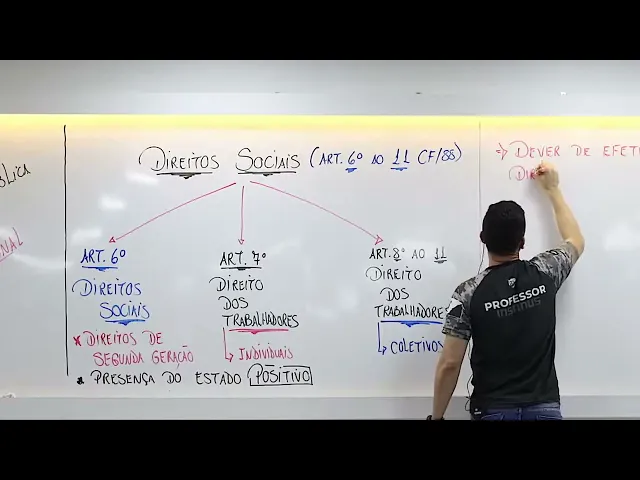 DIREITOS SOCIAIS (ART. 6º AO 11 CF/88)
ART. 6º
DIREITOS
SOCIAIS
x DIREITOS DE
SEGUNDA GERAÇÃO
• PRESENÇA DO ESTADO POSITIVO
ART. 7º
DIREITO
DOS
TRABALHADORES
↳ INDIVIDUAIS
ART. 8º AO 11
DIREITO
DOS
TRABALHADORES
↳ COLETIVOS
→ DEVER DE EFETI
DIR
PROFESSOR